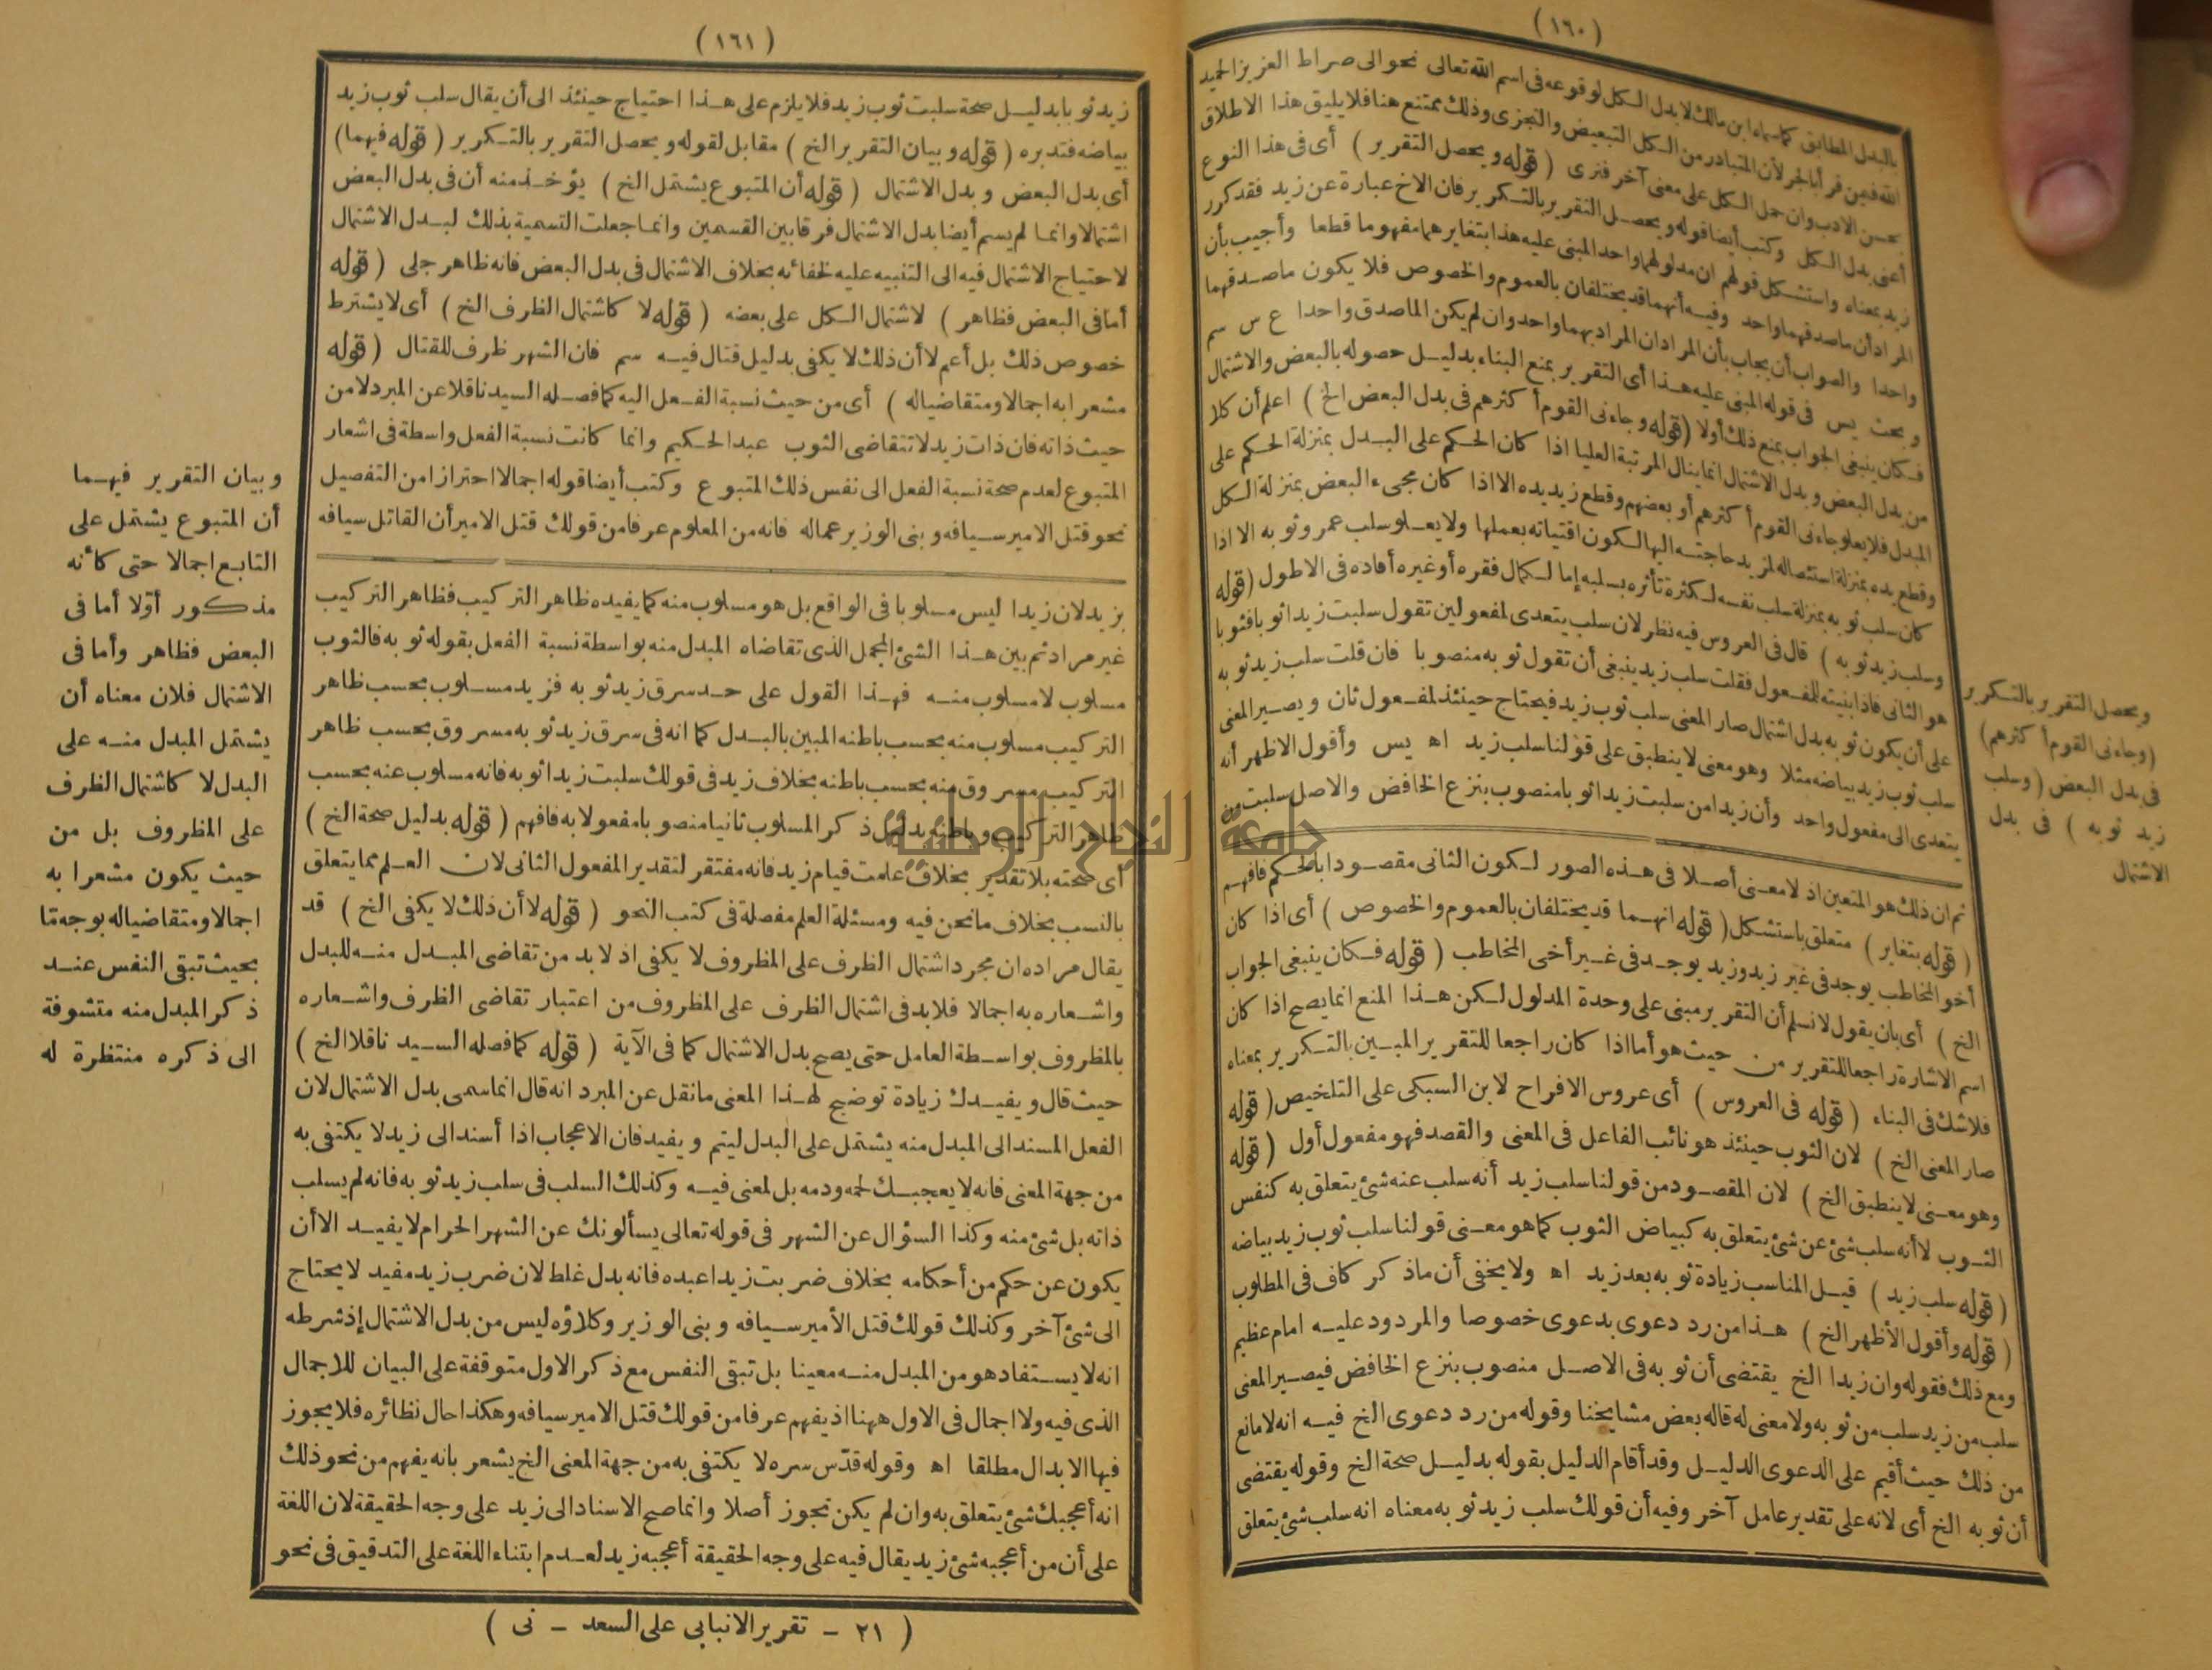 (١٦٠)
بالبدل المطابق كما سماه ابن مالك لا بدل الكل لوقوعه فى اسم الله تعالى نحو الى صراط العزيز الحميد
الله فيمن قرأ بالجر لأن المتبادر من الكل التبعيض والتجزى وذلك ممتنع هنا فلا يليق هذا الاطلاق
بحسن الادب وان حمل الكل على معنى آخر فترى (قوله ويحصل التقرير) أى فى هذا النوع
أعنى بدل الكل وكتب أيضا قوله ويحصل التقرير بالتكرير فان الاخ عبارة عن زيد فقد كرر
زيد بمعناه واستشكل قولهم ان مدلولهما واحد المبنى عليه هذا بتغايرهما مفهوما قطعا وأجيب بأن
المراد أن ماصدقهما واحد وفيه أنهما قد يختلفان بالعموم والخصوص فلا يكون ماصدقهما
واحدا والصواب أن يجاب بأن المراد ان المراد بهما واحد وان لم يكن الماصدق واحدا ع س سم
وبحث يس فى قوله المبنى عليه هذا أى التقرير بمنع البناء بدليل حصوله بالبعض والاشتمال
فكان ينبغى الجواب بمنع ذلك أولا (قوله وجاءنى القوم أكثرهم فى بدل البعض الخ) اعلم أن كلا
من بدل البعض وبدل الاشتمال انما ينال المرتبة العليا اذا كان الحكم على البدل بمنزلة الحكم على
المبدل فلا يعلو جاءنى القوم أكثرهم أو بعضهم وقطع زيد يده الا اذا كان مجىء البعض بمنزلة الكل
وقطع يده بمنزلة استئصاله لمزيد حاجته اليها لكون اقتياته بعملها ولا يعلو سلب عمرو ثوبه الا اذا
كان سلب ثوبه بمنزلة سلب نفسه لكثرة تأثره بسلبه إما لكمال فقره أو غيره أفاده فى الاطول (قوله
وسلب زيد ثوبه) قال فى العروس فيه نظر لان سلب يتعدى لمفعولين تقول سلبت زيدا ثوبا فثوبا
هو الثانى فاذا بنيته للمفعول فقلت سلب زيد ينبغى أن تقول ثوبه منصوبا فان قلت سلب زيد ثوبه
على أن يكون ثوبه بدل اشتمال صار المعنى سلب ثوب زيد فيحتاج حينئذ لمفعول ثان ويصير المعنى
سلب ثوب زيد بياضه مثلا وهو معنى لا ينطبق على قولنا سلب زيد اه يس وأقول الاظهر أنه
يتعدى الى مفعول واحد وأن زيدا من سلبت زيدا ثوبا منصوب بنزع الخافض والاصل سلبت من
ثم ان ذلك هو المتعين اذ لا معنى أصلا فى هذه الصور لكون الثانى مقصودا بالحكم فافهم
(قوله بتغاير) متعلق باستشكل (قوله انهما قد يختلفان بالعموم والخصوص) أى اذا كان
أخو المخاطب يوجد فى غير زيد وزيد يوجد فى غير أخى المخاطب (قوله فكان ينبغى الجواب
الخ) أى بان يقول لا نسلم أن التقرير مبنى على وحدة المدلول لكن هذا المنع انما يصح اذا كان
اسم الاشارة راجعا للتقرير من حيث هو أما اذا كان راجعا للتقرير المبين بالتكرير بمعناه
فلا شك فى البناء (قوله فى العروس) أى عروس الافراح لابن السبكى على التلخيص (قوله
صار المعنى الخ) لان الثوب حينئذ هو نائب الفاعل فى المعنى والقصد فهو مفعول أول (قوله
وهو معنى لا ينطبق الخ) لان المقصود من قولنا سلب زيد أنه سلب عنه شئ يتعلق به كنفس
الثوب لا أنه سلب شئ عن شئ يتعلق به كبياض الثوب كما هو معنى قولنا سلب ثوب زيد بياضه
(قوله سلب زيد) قيل المناسب زيادة ثوبه بعد زيد اه ولا يخفى أن ماذكر كاف فى المطلوب
(قوله وأقول الأظهر الخ) هذا من رد دعوى بدعوى خصوصا والمردود عليه امام عظيم
ومع ذلك فقوله وان زيدا الخ يقتضى أن ثوبه فى الاصل منصوب بنزع الخافض فيصير المعنى
سلب من زيد سلب من ثوبه ولا معنى له قاله بعض مشايخنا وقوله من رد دعوى الخ فيه انه لا مانع
من ذلك حيث أقيم على الدعوى الدليل وقد أقام الدليل بقوله بدليل صحة الخ وقوله يقتضى
أن ثوبه الخ أى لانه على تقدير عامل آخر وفيه أن قولك سلب زيد ثوبه معناه انه سلب شئ يتعلق
ويحصل التقرير بالتكرير
(وجاءنى القوم أكثرهم)
فى بدل البعض (وسلب
زيد ثوبه) فى بدل
الاشتمال
(١٦١)
زيد ثوبا بدليل صحة سلبت ثوب زيد فلا يلزم على هذا احتياج حينئذ الى أن يقال سلب ثوب زيد
بياضه فتدبره (قوله وبيان التقرير الخ) مقابل لقوله ويحصل التقرير بالتكرير (قوله فيهما)
أى بدل البعض وبدل الاشتمال (قوله أن المتبوع يشتمل الخ) يؤخذ منه أن فى بدل البعض
اشتمالا وانما لم يسم أيضا بدل الاشتمال فرقا بين القسمين وانما جعلت التسمية بذلك لبدل الاشتمال
لاحتياج الاشتمال فيه الى التنبيه عليه لخفائه بخلاف الاشتمال فى بدل البعض فانه ظاهر جلى (قوله
أما فى البعض فظاهر) لاشتمال الكل على بعضه (قوله لا كاشتمال الظرف الخ) أى لا يشترط
خصوص ذلك بل أعم لا أن ذلك لا يكفى بدليل قتال فيه سم فان الشهر ظرف للقتال (قوله
مشعرا به اجمالا ومتقاضيا له) أى من حيث نسبة الفعل اليه كما فصله السيد ناقلا عن المبرد لا من
حيث ذاته فان ذات زيد لا تتقاضى الثوب عبد الحكيم وانما كانت نسبة الفعل واسطة فى اشعار
المتبوع لعدم صحة نسبة الفعل الى نفس ذلك المتبوع وكتب أيضا قوله اجمالا احترازا من التفصيل
نحو قتل الامير سيافه وبنى الوزير عماله فانه من المعلوم عرفا من قولك قتل الامير أن القاتل سيافه
بزيد لان زيدا ليس مسلوبا فى الواقع بل هو مسلوب منه كما يفيده ظاهر التركيب فظاهر التركيب
غير مراد ثم بين هذا الشئ المجمل الذى تقاضاه المبدل منه بواسطة نسبة الفعل بقوله ثوبه فالثوب
مسلوب لا مسلوب منه فهذا القول على حد سرق زيد ثوبه فزيد مسلوب بحسب ظاهر
التركيب مسلوب منه بحسب باطنه المبين بالبدل كما انه فى سرق زيد ثوبه مسروق بحسب ظاهر
التركيب مسروق منه بحسب باطنه بخلاف زيد فى قولك سلبت زيدا ثوبه فانه مسلوب عنه بحسب
ظاهر التركيب وباطنه بدليل ذكر المسلوب ثانيا منصوبا مفعولا به فافهم (قوله بدليل صحة الخ)
أى صحته بلا تقدير بخلاف علمت قيام زيد فانه مفتقر لتقدير المفعول الثانى لان العلم مما يتعلق
بالنسب بخلاف ما نحن فيه ومسئلة العلم مفصلة فى كتب النحو (قوله لا أن ذلك لا يكفى الخ) قد
يقال مراده ان مجرد اشتمال الظرف على المظروف لا يكفى اذ لا بد من تقاضى المبدل منه للبدل
واشعاره به اجمالا فلا بد فى اشتمال الظرف على المظروف من اعتبار تقاضى الظرف واشعاره
بالمظروف بواسطة العامل حتى يصح بدل الاشتمال كما فى الآية (قوله كما فصله السيد ناقلا الخ)
حيث قال ويفيدك زيادة توضيح لهذا المعنى ما نقل عن المبرد انه قال انما سمى بدل الاشتمال لان
الفعل المسند الى المبدل منه يشتمل على البدل ليتم ويفيد فان الاعجاب اذا أسند الى زيد لا يكتفى به
من جهة المعنى فانه لا يعجبك لحمه ودمه بل لمعنى فيه وكذلك السلب فى سلب زيد ثوبه فانه لم يسلب
ذاته بل شئ منه وكذا السؤال عن الشهر فى قوله تعالى يسألونك عن الشهر الحرام لا يفيد الا أن
يكون عن حكم من أحكامه بخلاف ضربت زيدا عبده فانه بدل غلط لان ضرب زيد مفيد لا يحتاج
الى شئ آخر وكذلك قولك قتل الأمير سيافه وبنى الوزير وكلاؤه ليس من بدل الاشتمال إذ شرطه
انه لا يستفاد هو من المبدل منه معينا بل تبقى النفس مع ذكر الاول متوقفة على البيان للاجمال
الذى فيه ولا اجمال فى الاول ههنا اذ يفهم عرفا من قولك قتل الامير سيافه وهكذا حال نظائره فلا يجوز
فيها الابدال مطلقا اه وقوله قدّس سره لا يكتفى به من جهة المعنى الخ يشعر بانه يفهم من نحو ذلك
انه أعجبك شئ يتعلق به وان لم يكن تجوز أصلا وانما صح الاسناد الى زيد على وجه الحقيقة لان اللغة
على أن من أعجبه شئ زيد يقال فيه على وجه الحقيقة أعجبه زيد لعدم ابتناء اللغة على التدقيق فى نحو
وبيان التقرير فيهما
أن المتبوع يشتمل على
التابع اجمالا حتى كأنه
مذكور أوّلا أما فى
البعض فظاهر وأما فى
الاشتمال فلان معناه أن
يشتمل المبدل منه على
البدل لا كاشتمال الظرف
على المظروف بل من
حيث يكون مشعرا به
اجمالا ومتقاضيا له بوجه مّا
بحيث تبقى النفس عند
ذكر المبدل منه متشوقة
الى ذكره منتظرة له
(٢١ - تقرير الانبابى على السعد - نى)
جامعة النجاح الوطنية